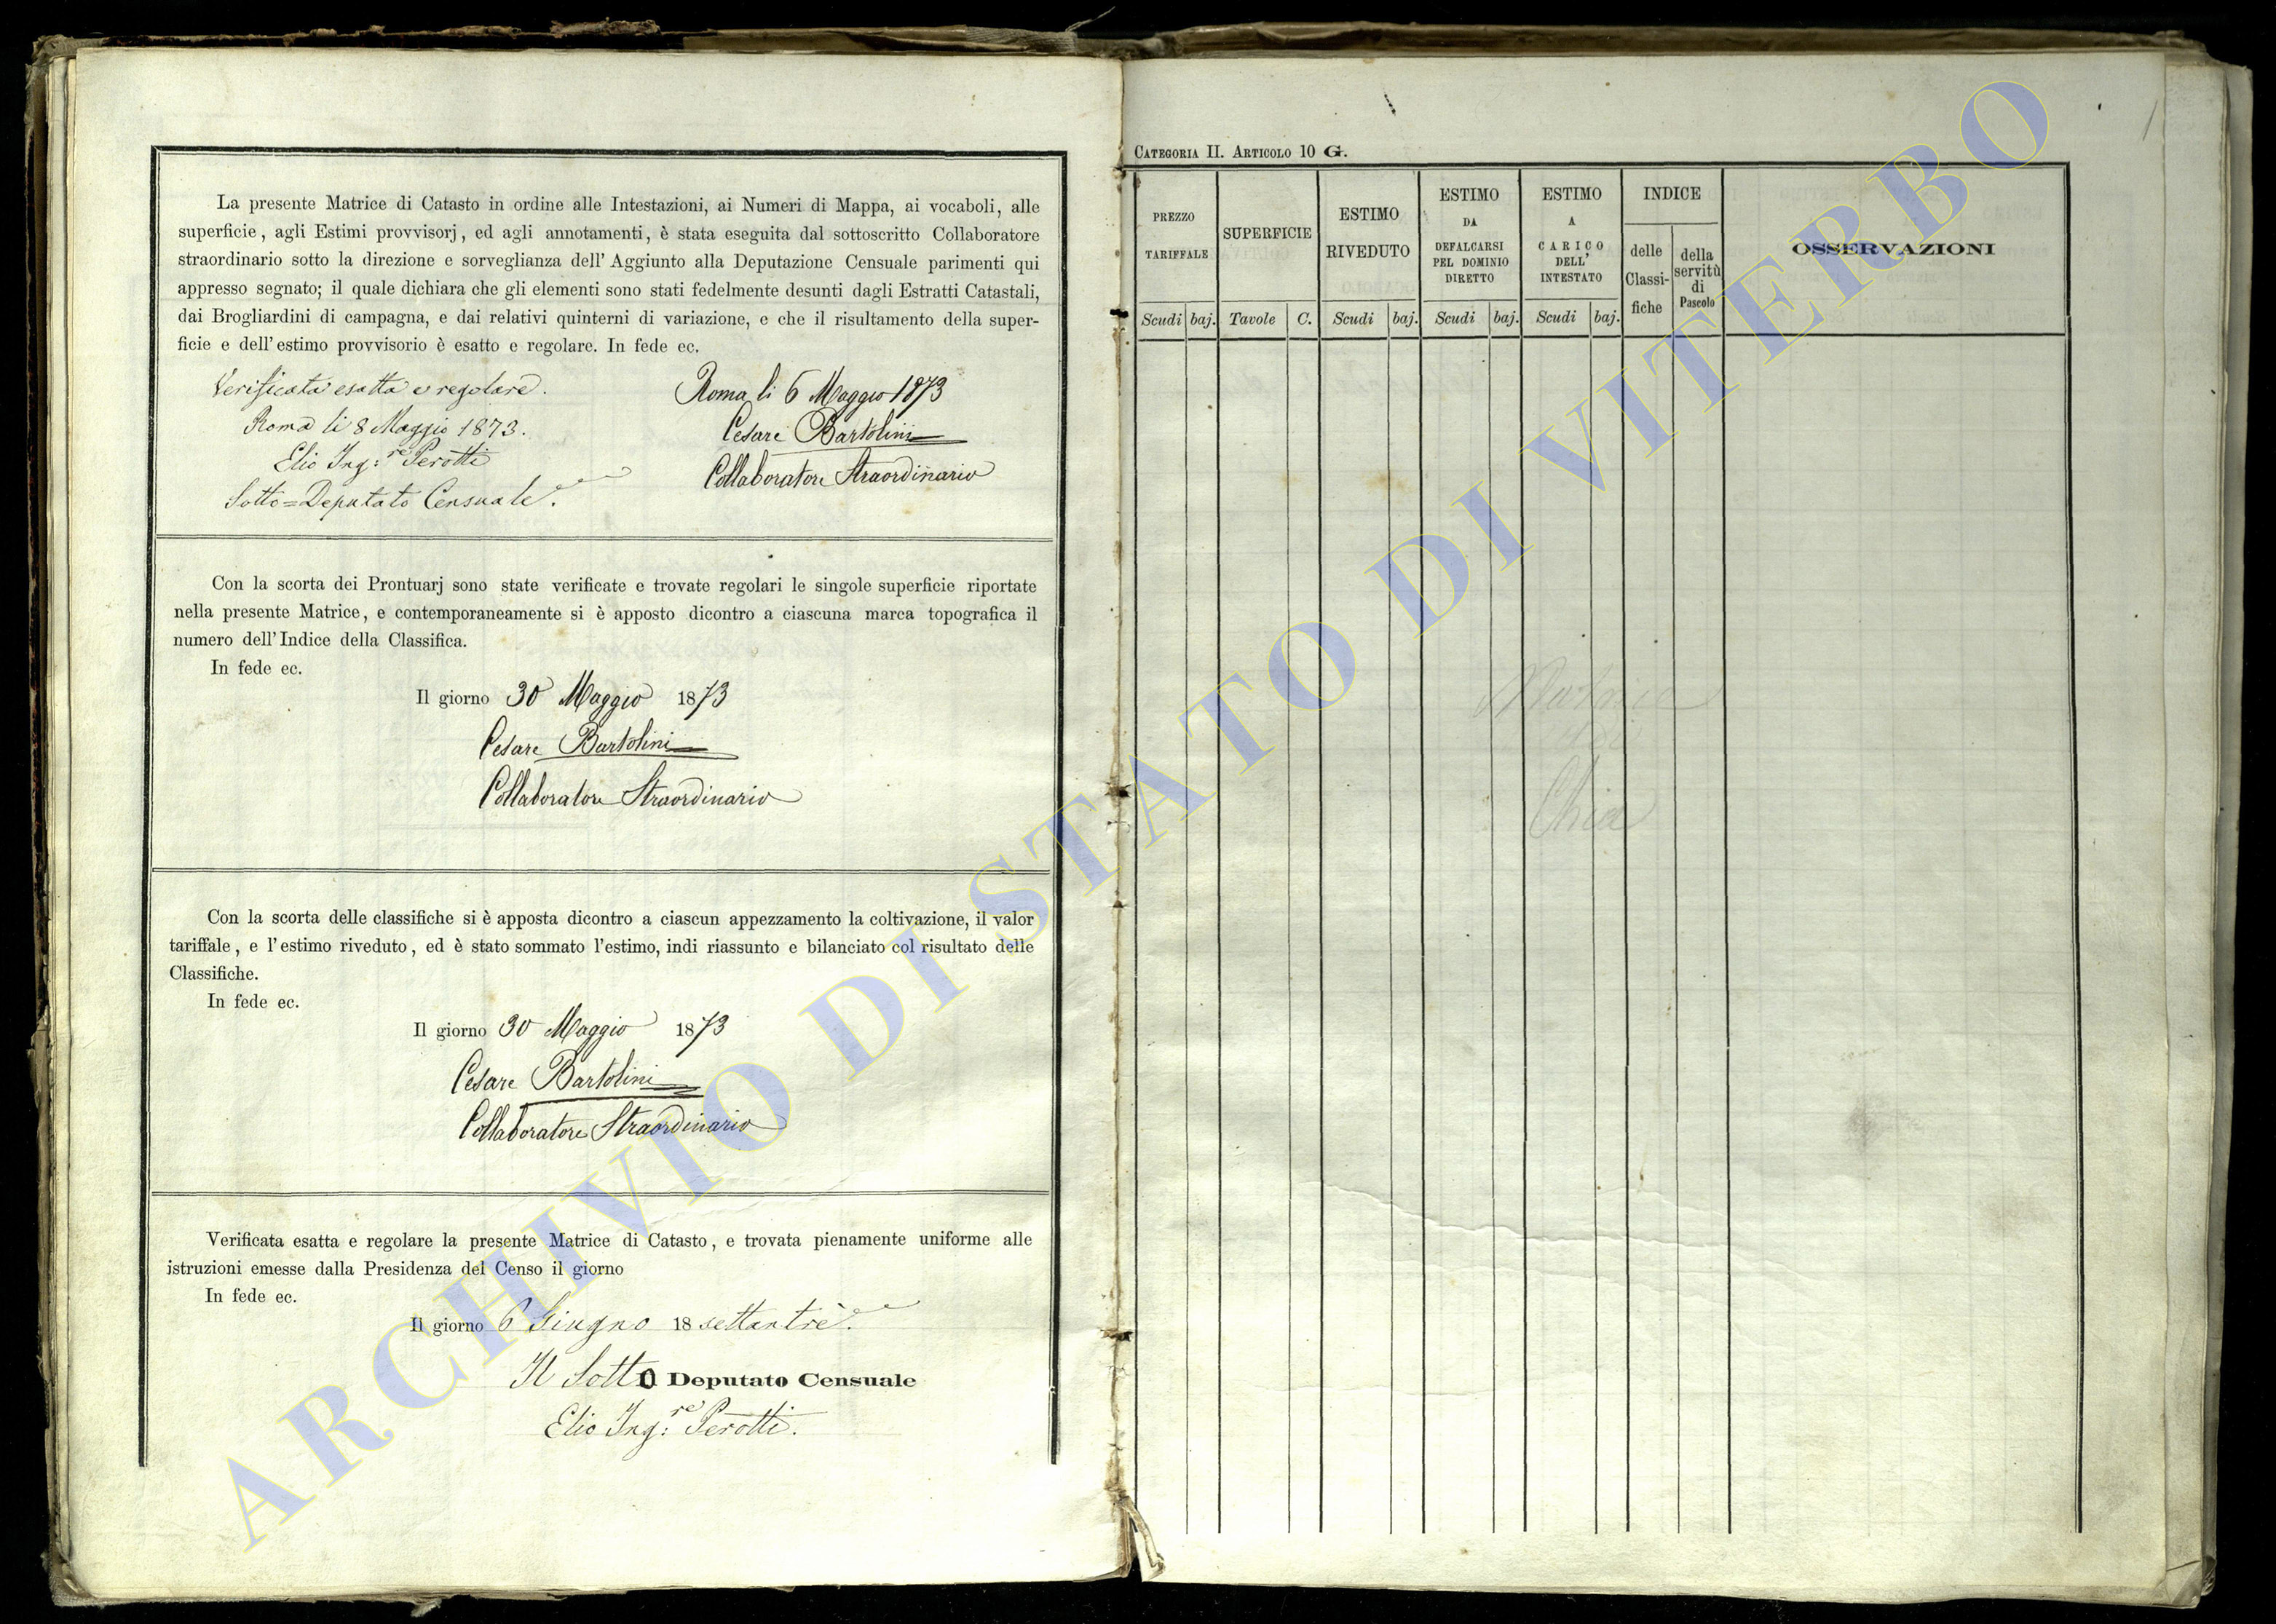 La presente Matrice di Catasto in ordine alle Intestazioni, ai Numeri di Mappa, ai vocaboli, alle
superficie, agli Estimi provvisorj, ed agli annotamenti, è stata eseguita dal sottoscritto Collaboratore
straordinario sotto la direzione e sorveglianza dell' Aggiunto alla Deputazione Censuale parimenti qui
appresso segnato; il quale dichiara che gli elementi sono stati fedelmente desunti dagli Estratti Catastali,
dai Brogliardini di campagna, e dai relativi quinterni di variazione, e che il risultamento della super-
ficie e dell' estimo provvisorio è esatto e regolare. In fede ec.
Verificata esatta e regolare.
Roma li 8 Maggio 1873.
Elio Ing:re Perotti
Sotto=Deputato Censuale.
Roma li 6 Maggio 1873
Cesare Bartolini
Collaboratore Straordinario
Con la scorta dei Prontuarj sono state verificate e trovate regolari le singole superficie riportate
nella presente Matrice, e contemporaneamente si è apposto dicontro a ciascuna marca topografica il
numero dell' Indice della Classifica.
In fede ec.
Il giorno 30 Maggio 1873
Cesare Bartolini
Collaboratore Straordinario
Con la scorta delle classifiche si è apposta dicontro a ciascun appezzamento la coltivazione, il valor
tariffale, e l' estimo riveduto, ed è stato sommato l'estimo, indi riassunto e bilanciato col risultato delle
Classifiche.
In fede ec.
Il giorno 30 Maggio 1873
Cesare Bartolini
Collaboratore Straordinario
Verificata esatta e regolare la presente Matrice di Catasto, e trovata pienamente uniforme alle
istruzioni emesse dalla Presidenza del Censo il giorno
In fede ec.
Il giorno 6 Giugno 18 settantrè.
Il Sotto Deputato Censuale
Elio Ing:re Perotti.
CATEGORIA II. ARTICOLO 10 G.
PREZZO
TARIFFALE
SUPERFICIE
ESTIMO
RIVEDUTO
ESTIMO
DA
DEFALCARSI
PEL DOMINIO
DIRETTO
ESTIMO
A
CARICO
DELL'
INTESTATO
INDICE
delle
Classi-
fiche
della
servitù
di
Pascolo
OSSERVAZIONI
Scudi baj. Tavole C. Scudi baj. Scudi baj. Scudi baj.
Matrice
di
Chia
1
ARCHIVIO DI STATO DI VITERBO